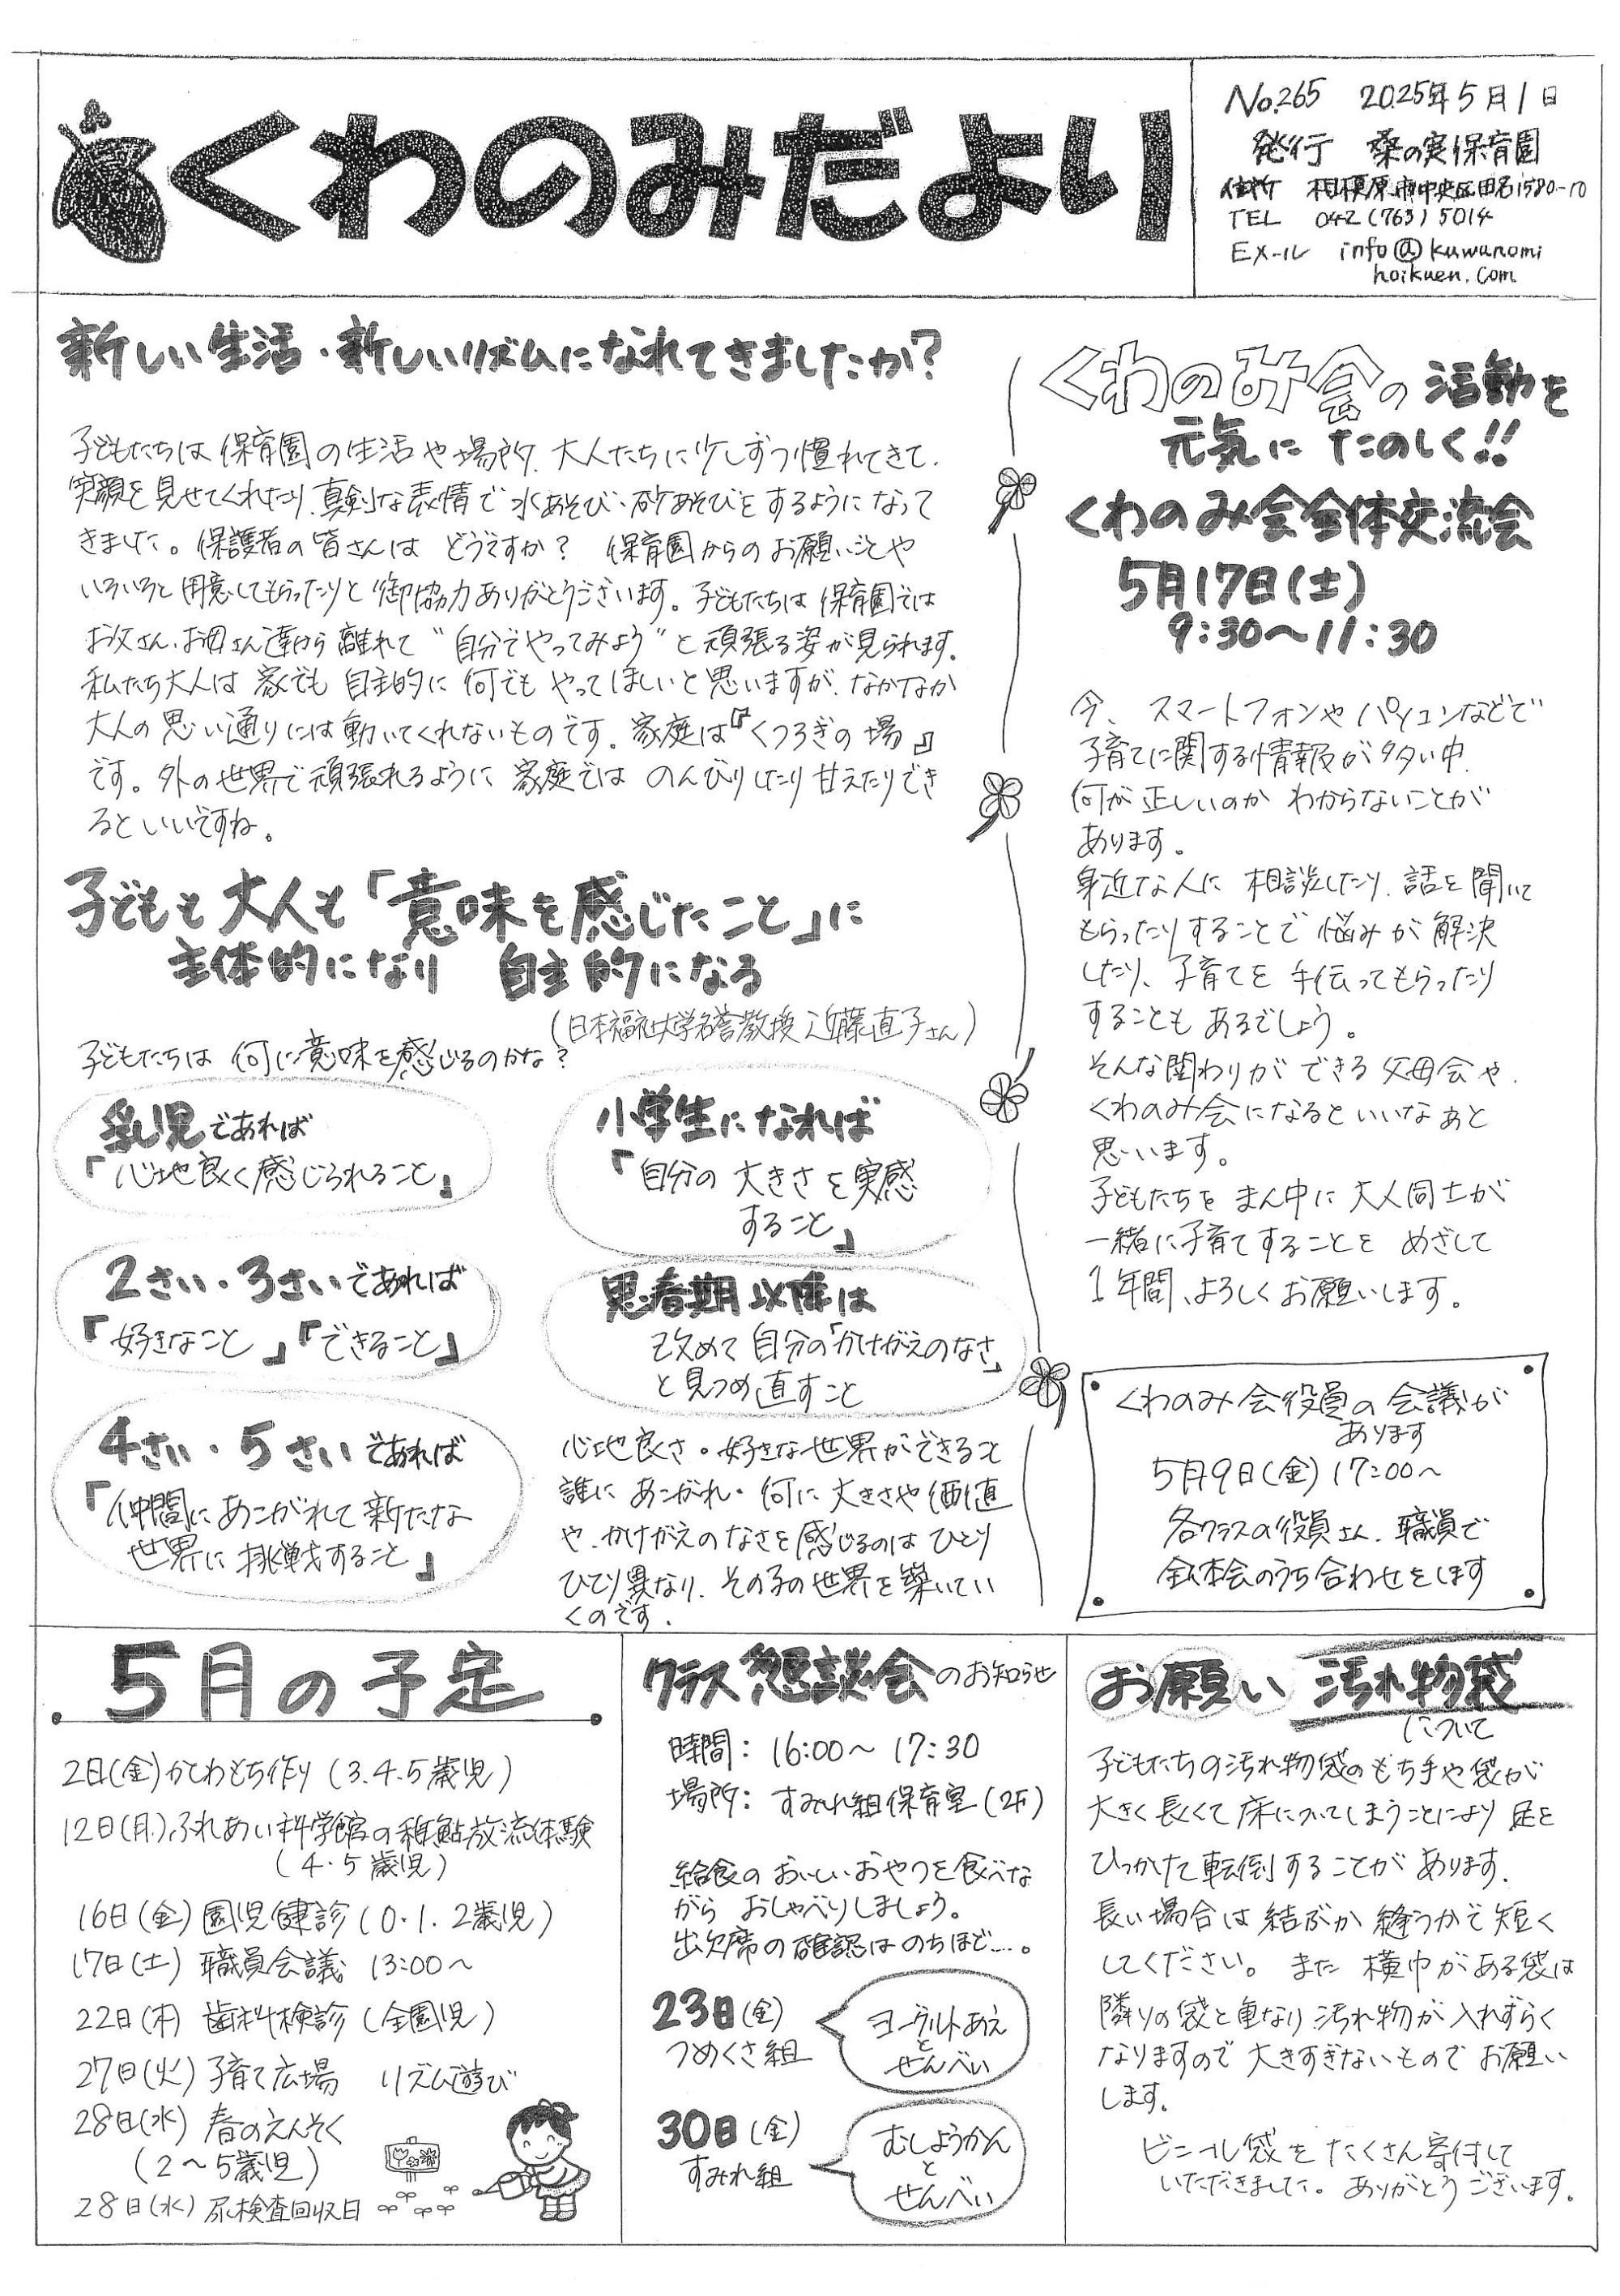 くわのみだより
No.265 2025年5月1日
発行 桑の実保育園
住所 相模原市中央区田名1580-10
TEL 042(763)5014
Eメール info@kuwanomi
hoikuen.com
新しい生活・新しいリズムになれてきましたか?
子どもたちは保育園の生活や場所、大人たちに少しずつ慣れてきて、
笑顔を見せてくれたり、真剣な表情で水あそび、砂あそびをするようになって
きました。保護者の皆さんは どうですか? 保育園からのお願いごとや
いろいろと用意してもらったりと御協力ありがとうございます。子どもたちは保育園では
お父さん、お母さん達から離れて"自分でやってみよう"と頑張る姿が見られます。
私たち大人は家でも自主的に何でもやってほしいと思いますが、なかなか
大人の思い通りには動いてくれないものです。家庭は『くつろぎの場』
です。外の世界で頑張れるように家庭ではのんびりしたり甘えたりでき
るといいですね。
子どもも大人も「意味を感じたこと」に
主体的になり 自主的になる
(日本福祉大学名誉教授 近藤直子さん)
子どもたちは 何に意味を感じるのかな?
乳児であれば
「心地良く感じられること」
2さい・3さいであれば
「好きなこと」「できること」
4さい・5さいであれば
「仲間にあこがれて新たな
世界に挑戦すること」
小学生になれば
「自分の大きさを実感
すること」
思春期以降は
改めて自分の「かけがえのなさ」
と見つめ直すこと
心地良さ・好きな世界ができること
誰にあこがれ・何に大きさや価値
や、かけがえのなさを感じるのはひとり
ひとり異なり、その子の世界を築いてい
くのです。
くわのみ会の活動を
元気に たのしく!!
くわのみ会全体交流会
5月17日(土)
9:30〜11:30
今、スマートフォンやパソコンなどで
子育てに関する情報が多い中、
何が正しいのか わからないことが
あります。
身近な人に相談したり、話を聞いて
もらったりすることで悩みが解決
したり、子育てを手伝ってもらったり
することもあるでしょう。
そんな関わりができる父母会や、
くわのみ会になるといいなぁと
思います。
子どもたちをまん中に大人同士が
一緒に子育てすることをめざして
1年間、よろしくお願いします。
くわのみ会役員の会議が
あります
5月9日(金) 17:00〜
各クラスの役員さん、職員で
全体会のうち合わせをします
5月の予定
2日(金) かしわもち作り (3.4.5歳児)
12日(月) ふれあい科学館の稚鮎放流体験
(4・5歳児)
16日(金) 園児健診 (0.1.2歳児)
17日(土) 職員会議 13:00〜
22日(木) 歯科検診 (全園児)
27日(火) 子育て広場 リズム遊び
28日(水) 春のえんそく
(2〜5歳児)
28日(水) 尿検査回収日
クラス懇談会のお知らせ
時間: 16:00〜17:30
場所: すみれ組保育室 (2F)
給食のおいしいおやつを食べな
がら おしゃべりしましょう。
出欠席の確認はのちほど…。
23日(金)
つめくさ組
ヨーグルトあえ
と
せんべい
30日(金)
すみれ組
むしようかん
と
せんべい
お願い 汚れ物袋
について
子どもたちの汚れ物袋のもち手や袋が
大きく長くて床についてしまうことにより足を
ひっかけて転倒することがあります。
長い場合は結ぶか縫うかで短く
してください。また横巾がある袋は
隣りの袋と重なり汚れ物が入れずらく
なりますので大きすぎないものでお願い
します。
ビニール袋をたくさん寄付して
いただきました。ありがとうございます。